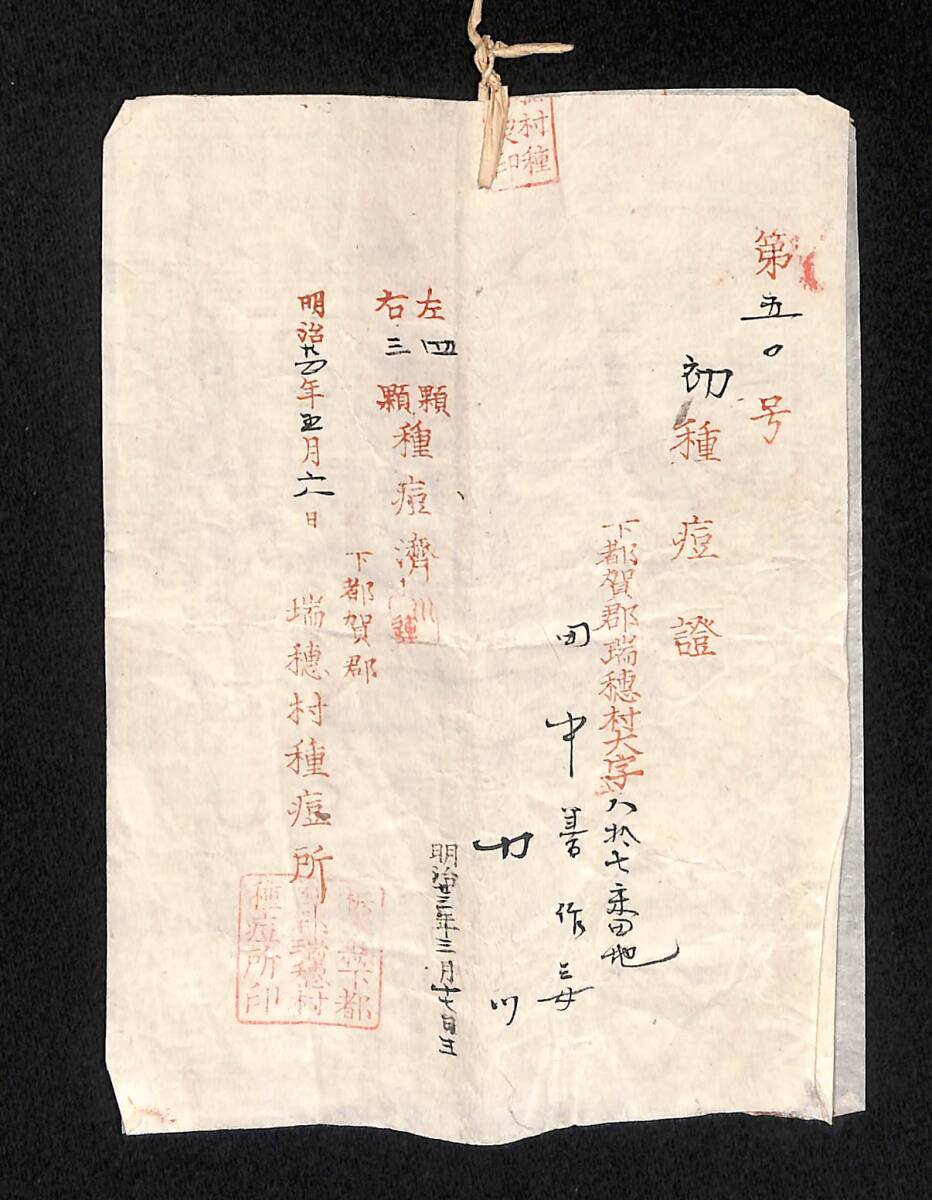 村種
印
第五〇号
初種痘證
下都賀郡瑞穂村大字八拾七番地
田中善作三女
カ川
明治廿三年三月十七日生
左四顆
右三顆
種痘濟
明治廿四年五月六日
下都賀郡
瑞穂村種痘所
下都
瑞穂村
種痘所印